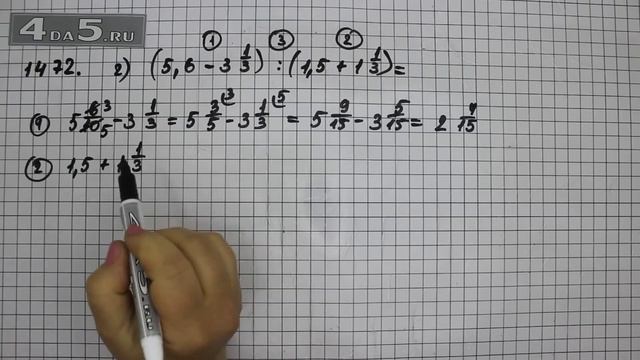 4DA5.RU
① ③ ②
1472. 2) (5,6 - 3 1/3) : (1,5 + 1 1/3) =
① 5 6/10 3 5 - 3 1/3 = 5 3/5 3 - 3 1/3 5 = 5 9/15 - 3 5/15 = 2 4/15
② 1,5 + 1 1/3